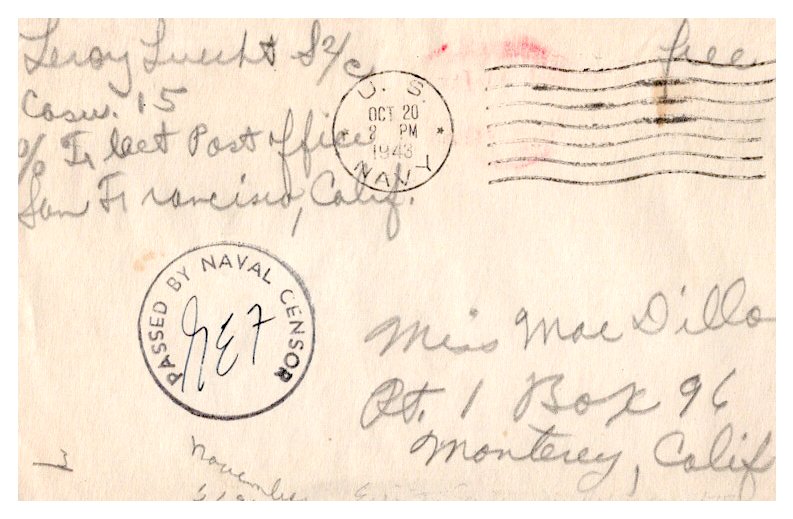 Leroy Luecht S2/c
Casu. 15
c/o Fleet Post Office
San Francisco, Calif.
free
U. S.
OCT 20
2 PM
1943
NAVY
PASSED BY NAVAL CENSOR
Miss Mae Dillo
Rt. 1 Box 96
Monterey, Calif
3
November